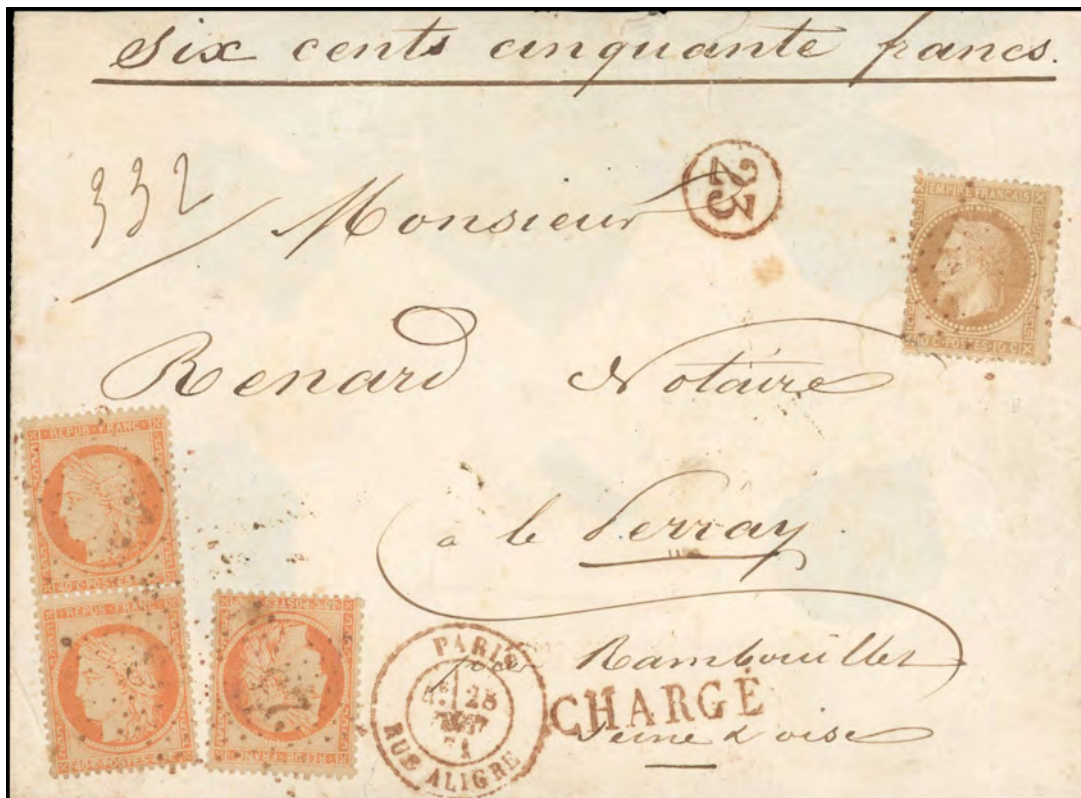 Six cents cinquante francs.
332
23
Monsieur
EMPIRE FRANÇAIS
10 C·POSTES·10 C
Renard Notaire
REPUB·FRANC·
40·C·POSTES
à le Perray.
REPUB·FRANC·
40·C·POSTES
REPUB·FRANC·
40·C·POSTES
PARIS
28
71
RUE ALIGRE
par Rambouillet
CHARGÉ
Seine & oise